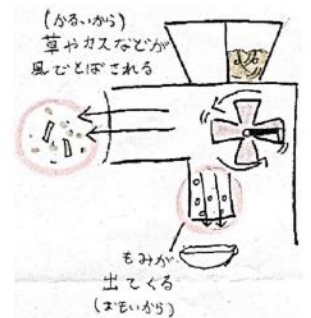 (かるいから)
草やカスなどが
風でとばされる
もみが
出てくる
(おもいから)